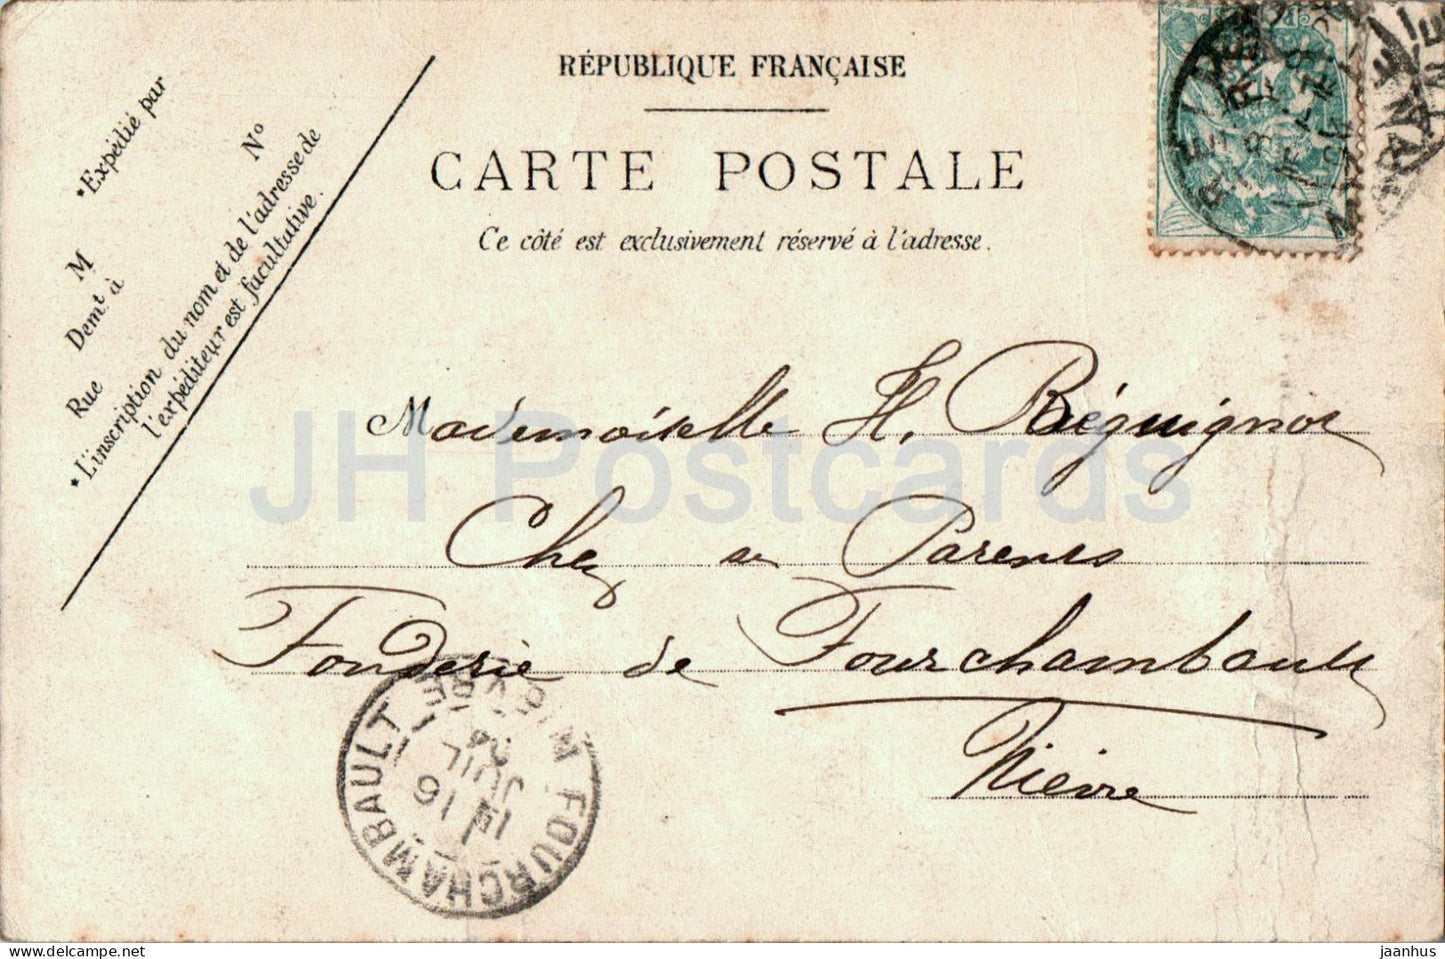 RÉPUBLIQUE FRANÇAISE
CARTE POSTALE
Ce côté est exclusivement réservé à l'adresse.
*Expédié par
M
Demt. à
Rue
No
*L'inscription du nom et de l'adresse de
l'expéditeur est facultative.
Mademoiselle H. Béguignot
Chez ses Parents
Fonderie de Fourchambault
Nièvre
FOURCHAMBAULT NIÈVRE
16
JUIL
04
JH Postcards
jaanhus